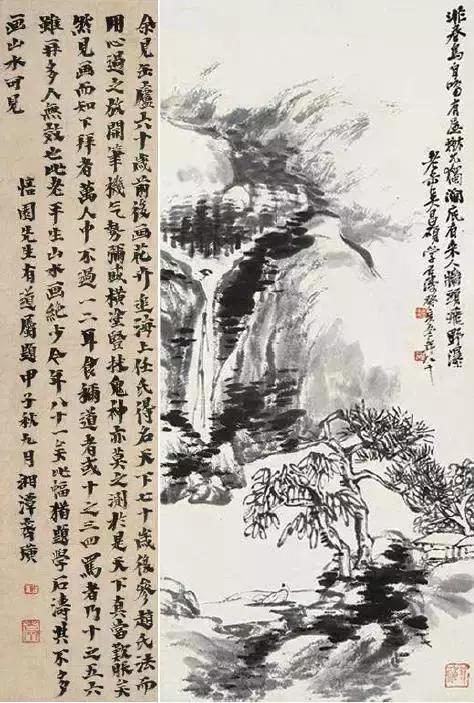 自啼有屋樹不獨澗底有朱人頭飛野瀑
吳昌碩學石濤癸亥八十
余見缶廬六十歲前後画花卉追海上任氏得名天下七十歲後參趙氏法而
用心過之放開筆機气勢彌盛橫塗豎抹鬼神亦莫之測於是天下真當致眼矣
然見画而知下拜者萬人中不過一二耳食稱道者或十之三四罵者乃十之五六
雖拜多人無數也此老平生山水画絶少今年八十一矣此幅猶題學石濤其不多
画山水可見
悟園先生有道屬題 甲子秋九月 湘潭齊璜